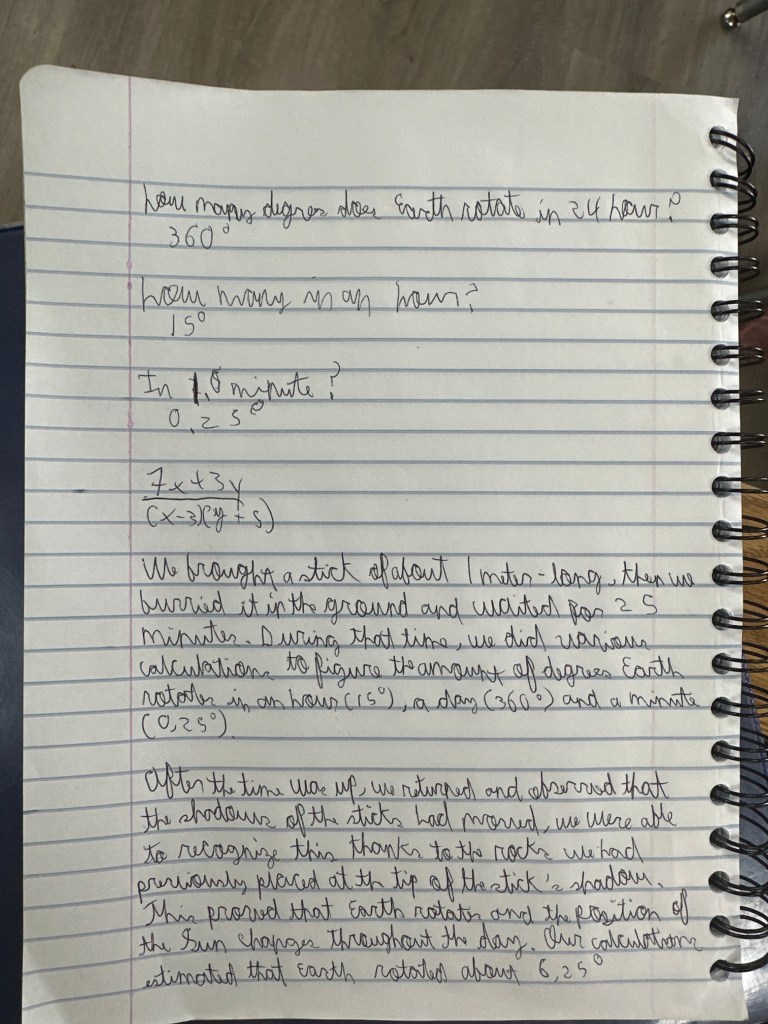 how many degres does Earth rotate in 24 hour?
360°
how many in an hour?
15°
In 1.0 minute?
0,25°
7x+3y
(x-3)(y+5)
We brought a stick of about 1 meter-long, then we
burried it in the ground and waited for 25
minutes. During that time, we did various
calculations to figure the amount of degrees Earth
rotates in an hour (15°), a day (360°) and a minute
(0,25°).
After the time was up, we returned and observed that
the shadows of the sticks had moved, we were able
to recognize this thanks to the rocks we had
previously placed at the tip of the stick's shadow.
This proved that Earth rotates and the position of
the Sun changes throughout the day. Our calculations
estimated that Earth rotated about 6,25°